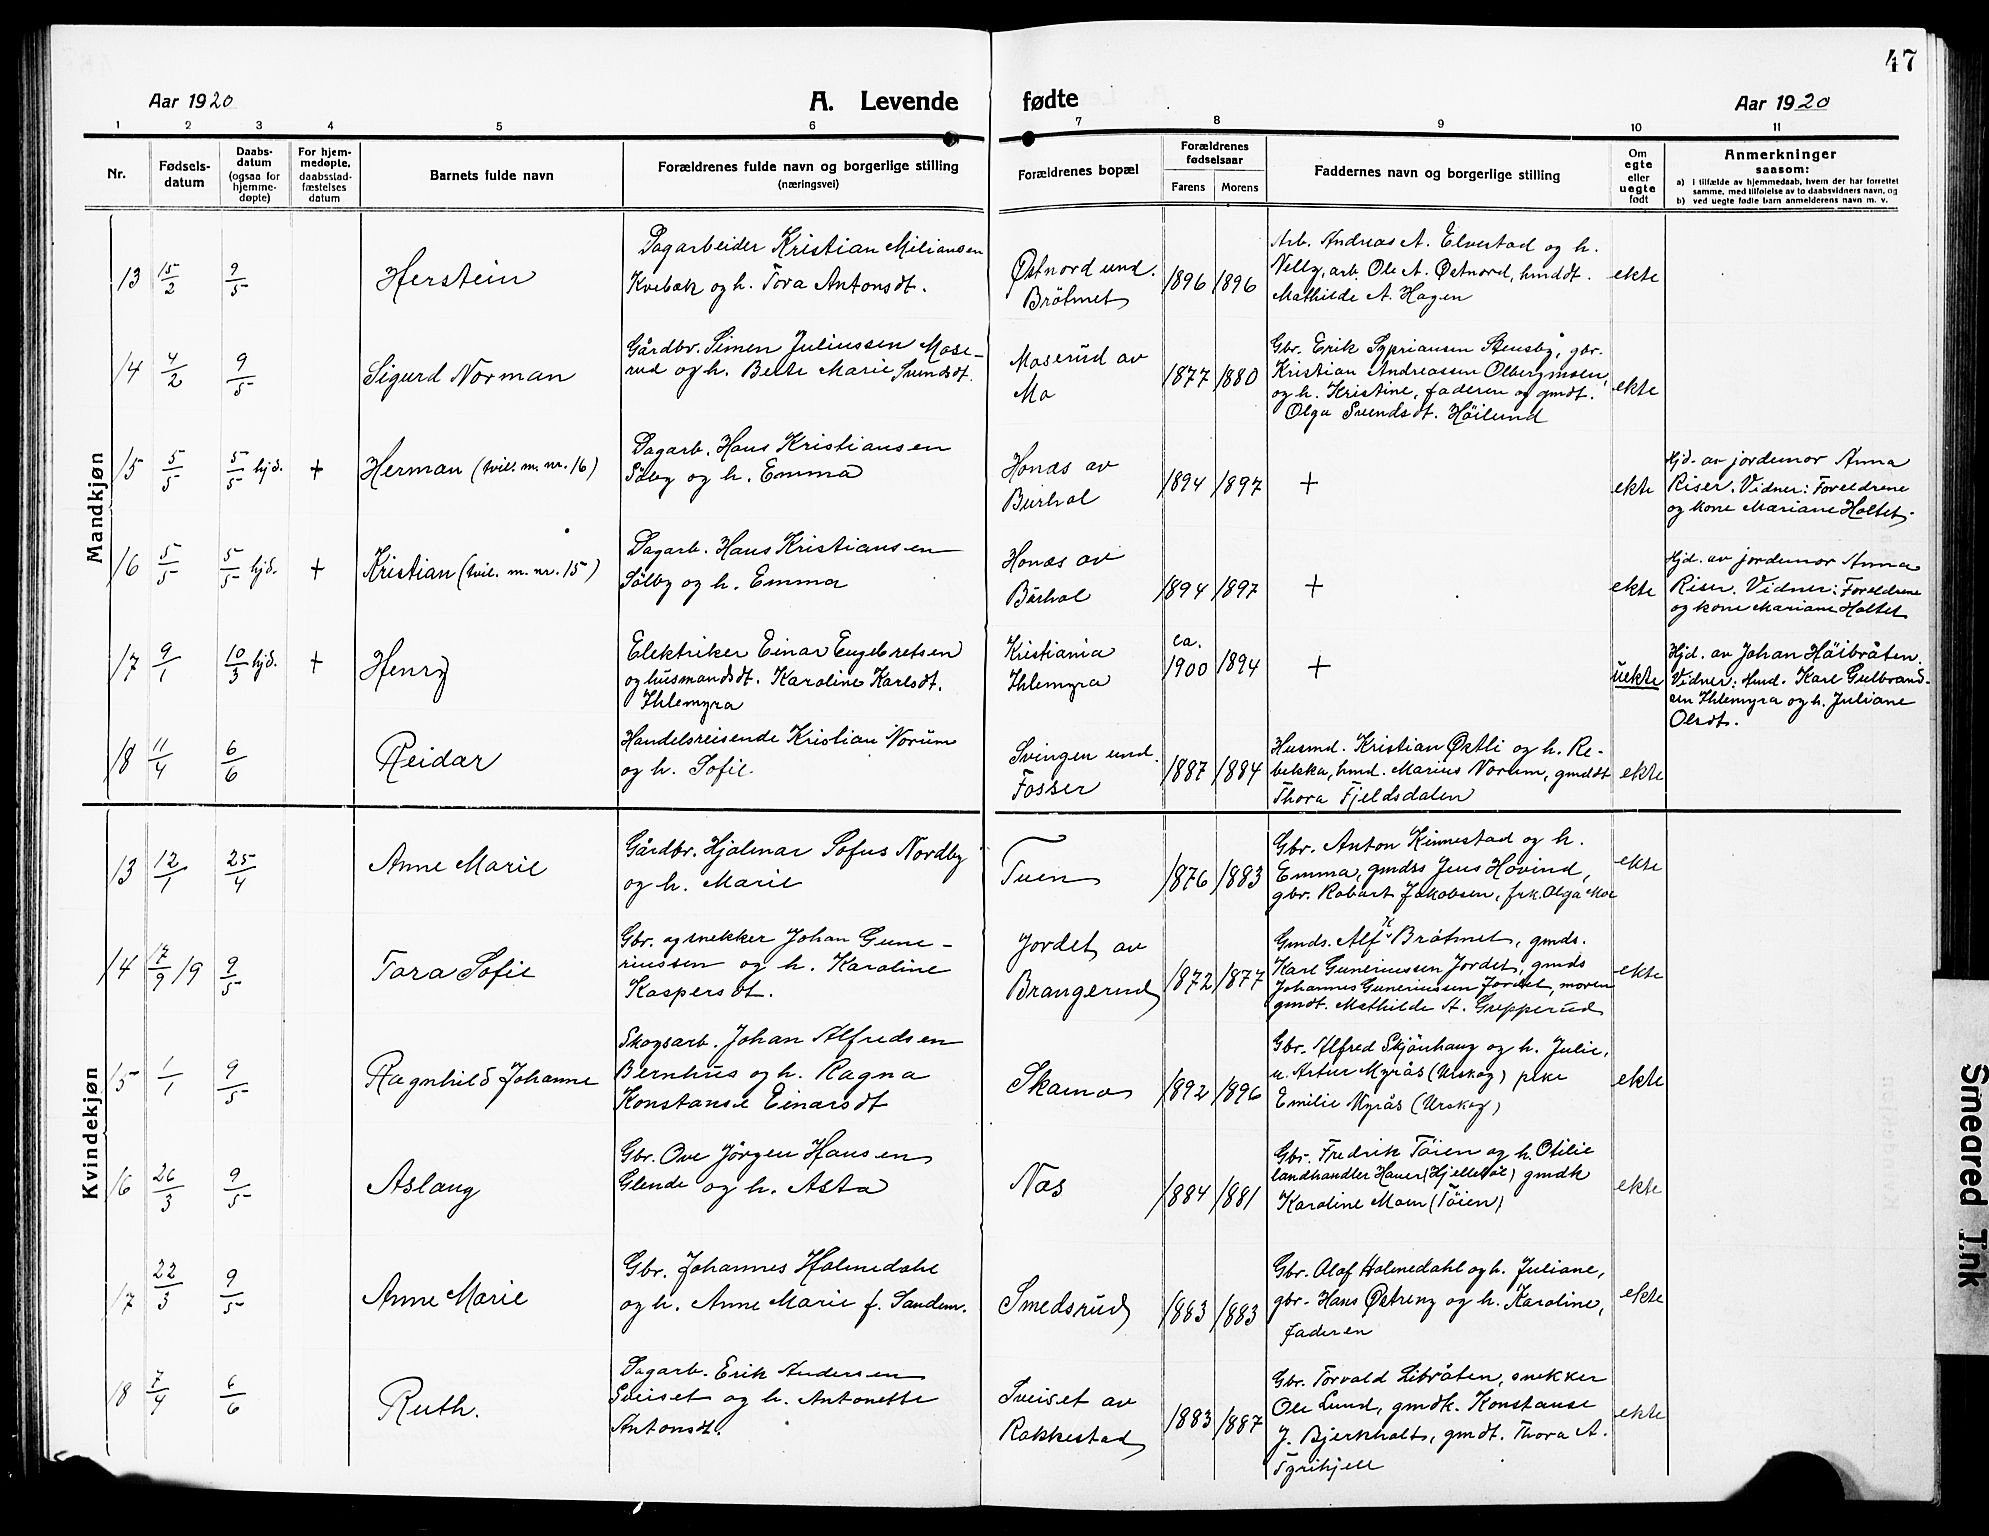 47
Aar 1920
A. Levende fødte
Aar 1920
1 2 3 4 5 6 7 8 9 10 11
Nr.
Fødsels-
datum
Daabs-
datum
(ogsaa for
hjemme-
døpte)
For hjem-
medøpte,
daabsstad-
fæstelses
datum
Barnets fulde navn
Forældrenes fulde navn og borgerlige stilling
(næringsvei)
Forældrenes bopæl
Forældrenes
fødselsaar
Farens Morens
Faddernes navn og borgerlige stilling
Om
egte
eller
uegte
født
Anmerkninger
saasom:
a) i tilfælde av hjemmedaab, hvem der har forrettet
samme, med tilføielse av to daabsvidners navn, og
b) ved uegte fødte barn anmelderens navn m. v.
Mandkjøn
13 15/2 9/5 Herstein
Dagarbeider Kristian Miliansen
Kvebæk og h. Tora Antonsdt.
Østnord und.
Bråtmet
1896 1896
Arb. Andreas A. Elvestad og h.
Nelly, arb. Ole A. Østnord, hmddt.
Mathilde A. Hagen
ekte
14 4/2 9/5 Sigurd Norman
Gårdbr. Simen Juliussen Mose-
rud og h. Berte Marie Svendsdt.
Moserud av
Mo
1877 1880
Gbr. Erik Sypriansen Stensby, gbr.
Kristian Andreassen Olbergmoen,
og h. Kristine, faderen og gmdt.
Olga Svendsdt. Höilund
ekte
15 5/5 5/5 hjd. + Herman (tvil. m. nr. 16)
Dagarb. Hans Kristiansen
Sölby og h. Emma
Honæs av
Börhol
1894 1897
+
ekte
Hjd. av jordmor Anna
Riser. Vidner: Foreldrene
og kone Mariane Holtet
16 5/5 5/5 hjd. + Kristian (tvil. m. nr. 15)
Dagarb. Hans Kristiansen
Sölby og h. Emma
Honæs av
Börhol
1894 1897
+
ekte
Hjd. av jordmor Anna
Riser. Vidner: Foreldrene
og kone Mariane Holtet
17 9/1 10/3 hjd. + Henry
Elektriker Einar Engebretsen
og husmandsdt. Karoline Karlsdt.
Ihlemyra
Kristiania
Ihlemyra
ca.
1900 1894
+
uekte
Hjd. av Johan Höibråten.
Vidner: Hmd. Karl Gulbrand-
sen Ihlemyra og h. Juliane
Olsdt.
18 11/4 6/6 Reidar
Handelsreisende Kristian Norum
og h. Sofie.
Svingen und.
Fosser
1887 1884
Husmd. Kristian Østli og h. Re-
bekka, hmd. Marius Norum, gmddt
Thora Fjeldsdalen
ekte
Kvindekjøn
13 12/1 25/4 Anne Marie
Gårdbr. Hjalmar Sofus Nordby
og h. Marie
Tuen
1876 1883
Gbr. Anton Kinnestad og h.
Emma, gmds Jens Hovind,
gbr. Robart Jakobsen, frk. Olga Moe
ekte
14 17/9 19 9/5 Tora Sofie
Gbr. og snekker Johan Gune-
riussen og h. Karoline
Kaspersdt.
Jordet av
Brangerud
1872 1877
Gmds. Alf K. Bråtmet, gmds.
Karl Guneriussen Jordet, gmds
Johannes Guneriussen Jordet, moren
gmdt. Mathilde A. Grepperud
ekte
15 1/1 9/5 Ragnhild Johanne
Skogsarb. Johan Alfredsen
Bernhus og h. Ragna
Konstanse Einarsdt
Skamo
1892 1896
Gbr. Alfred Skjönhaug og h. Julie,
u. Artur Myrås (Urskog) pike
Emilie Myrås (Urskog)
ekte
16 26/3 9/5 Aslaug
Gbr. Ove Jörgen Hansen
Glende og h. Asta
Næs
1884 1881
Gbr. Fredrik Töien og h. Otilie
landhandler Hauer (Hjelleböl) gmdk
Karoline Moen (Töien)
ekte
17 22/3 9/5 Anne Marie
Gbr. Johannes Holmedahl
og h. Anne Marie f. Sandem.
Smedsrud
1883 1883
Gbr. Olaf Holmedahl og h. Juliane,
gbr. Hans Østreng og h. Karoline,
faderen
ekte
18 7/4 6/6 Ruth.
Dagarb. Erik Andersen
Sveiset og h. Antonette
Antonsdt.
Sveiset av
Rakkestad
1883 1887
Gbr. Torvald Libråten, snekker
Ole Lund, gmdk. Konstanse
J. Bjerkholt, gmdt. Thora A.
Tyrihjell
ekte
Smeared Ink